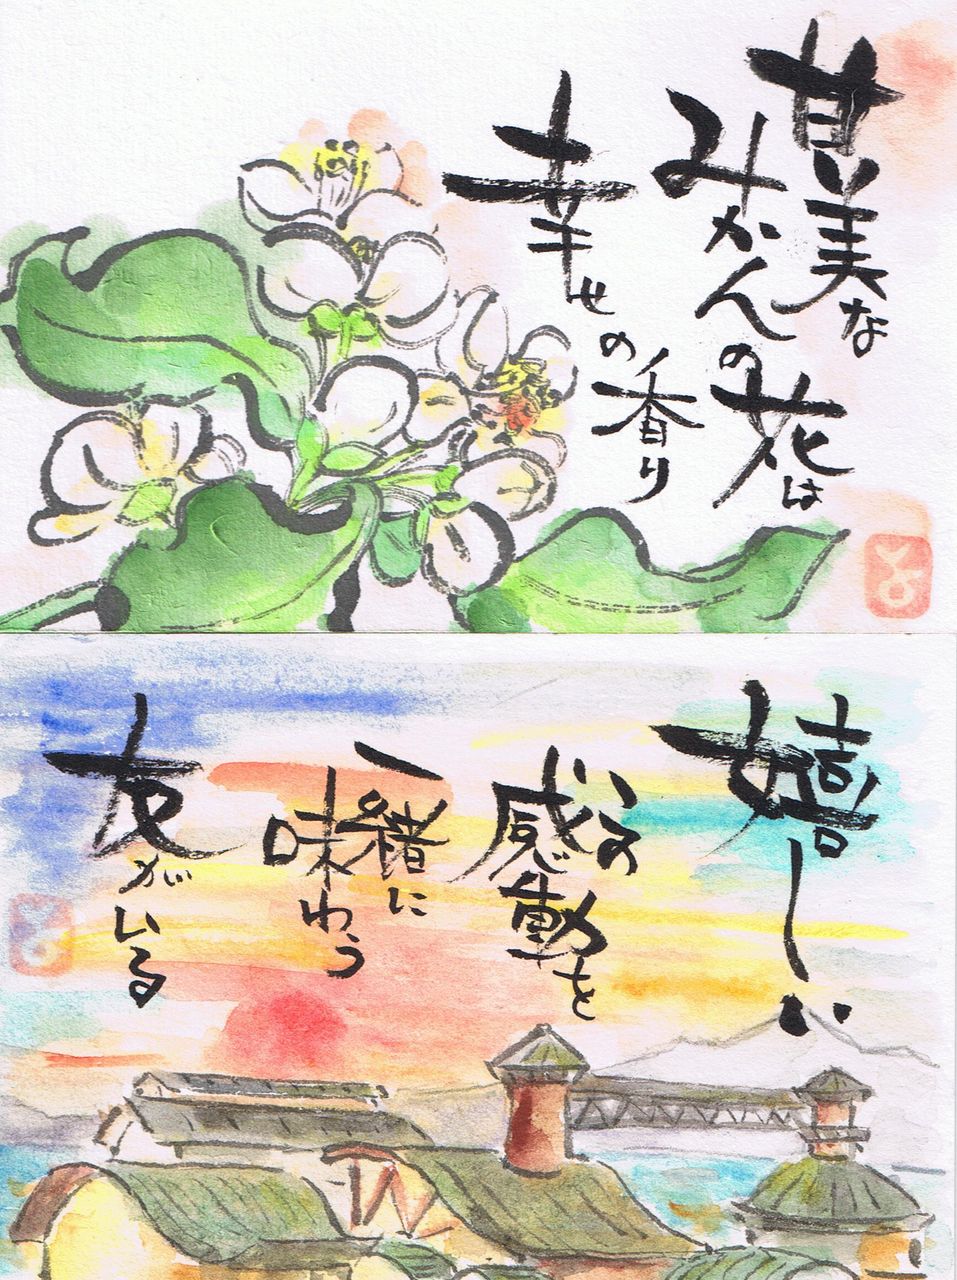 甘美な
みかんの花は
幸せの香り
嬉しい
感動を
一緒に
味わう
友がいる